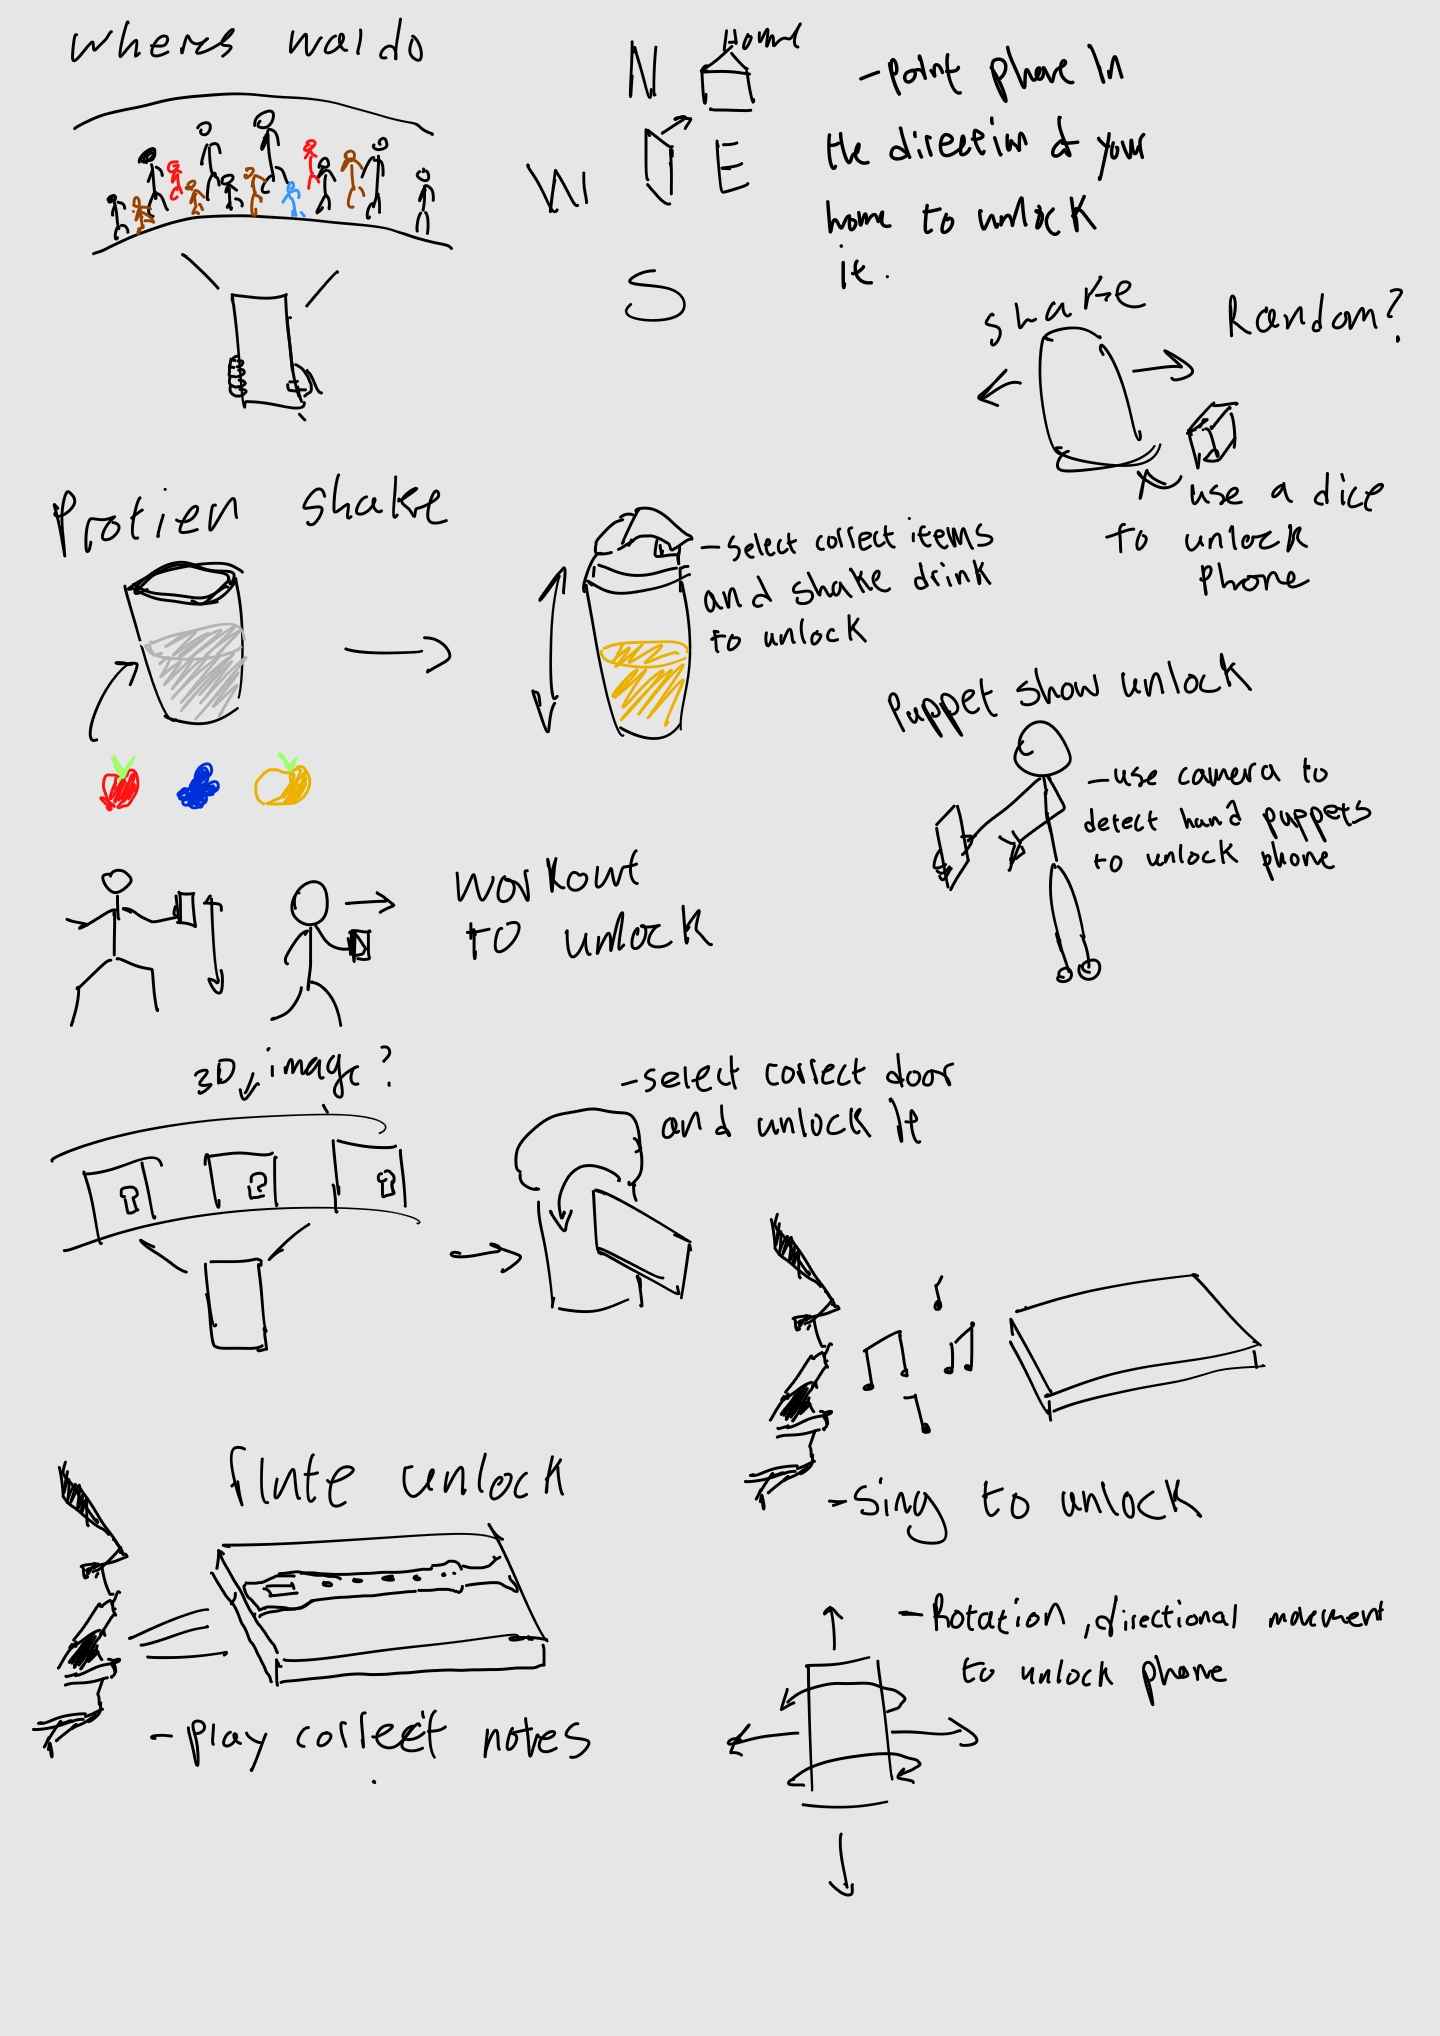 wheres waldo
N
Home
W
E
S
- point phone in
the direction of your
home to unlock
it.
shake
Random?
use a dice
to unlock
phone
Protien shake
- select correct items
and shake drink
to unlock
Puppet show unlock
- use camera to
detect hand puppets
to unlock phone
workout
to unlock
3D image?
- select correct door
and unlock it
- sing to unlock
flute unlock
- play correct notes
- Rotation, directional movement
to unlock phone